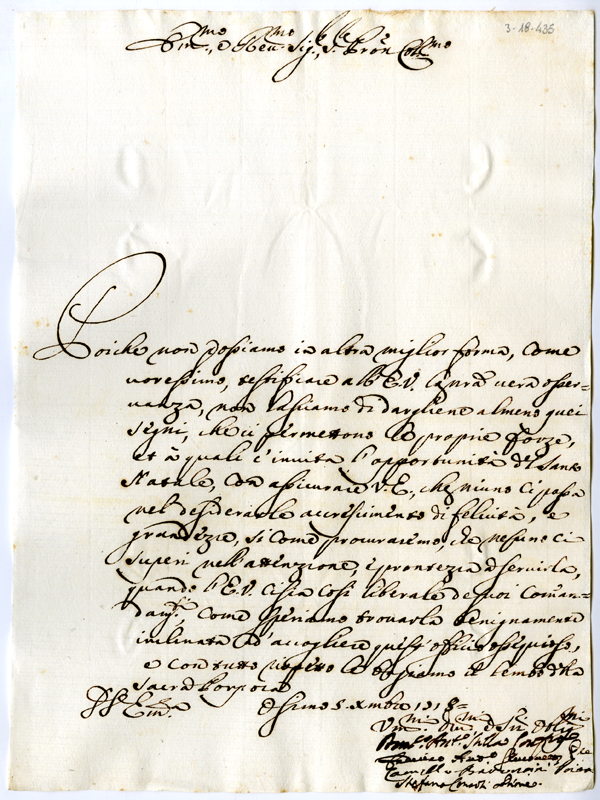 3-18-435
Em.mo, e Reu.mo Sig.r, e Pron Coll.mo
Poiche non possiamo in altra miglior forma, come
uoressimo, testificare all'E.V. la nra uera osser=
uanza, non lasciamo di dargliene almeno quei
segni, che ci permettono le proprie forze,
et à quali c'inuita l'opportunità del Santo
Natale, con assicurare V.E., che niuno ci passa
nel desiderarle accrescimento di felicità, e
grandezze, si come procuraremo, che nessuno ci
superi nell'attenzione, e prontezza di seruirla,
quando l'E.V. ci sia così liberale de suoi coman=
dam.ti, come speriamo trouarla benignamente
inclinata ad accogliere questi officij ossequiosi,
e con tutto rispetto le bagiamo il lembo della
Sacra Porpora
D V. Em.za Osimo 5. Xmbre
V.mi Deu.mi
Ant.o
Stefano